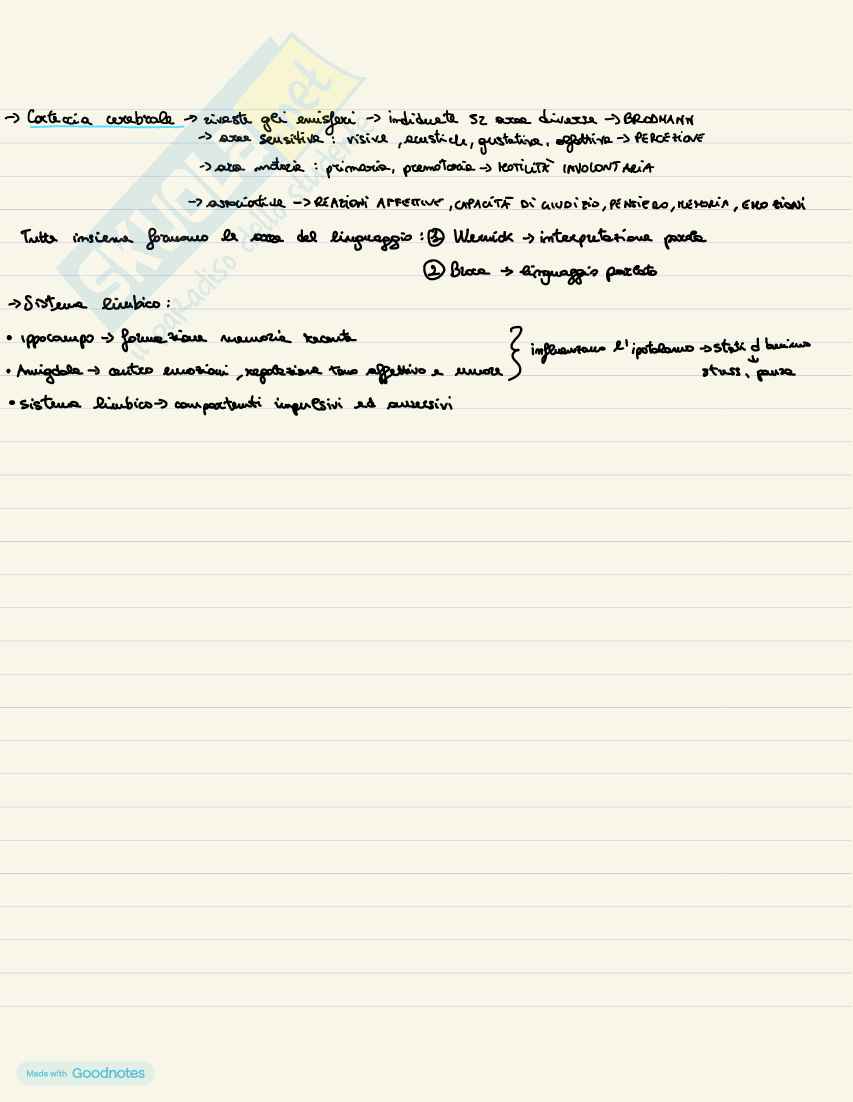 → Corteccia cerebrale → riveste gli emisferi → individuate 52 aree diverse → BRODMANN
→ aree sensitive: visive, acustiche, gustative, olfattive → PERCEZIONE
→ area motoria: primaria, premotoria → MOTILITÀ INVOLONTARIA
→ associative → REAZIONI AFFETTIVE, CAPACITÀ DI GIUDIZIO, PENSIERO, MEMORIA, EMOZIONI
Tutte insieme formano le aree del linguaggio: ① Wernick → interpretazione parola
② Broca → linguaggio parlato
→ Sistema limbico:
• Ippocampo → formazione memoria recente
• Amigdala → centro emozioni, regolazione tono affettivo e umore } influenzano l'ipotalamo → stati d'animo
↓
stress, paura
• sistema limbico → comportamenti impulsivi ed
SKUOLA.net
il paradiso dello studente
Made with Goodnotes